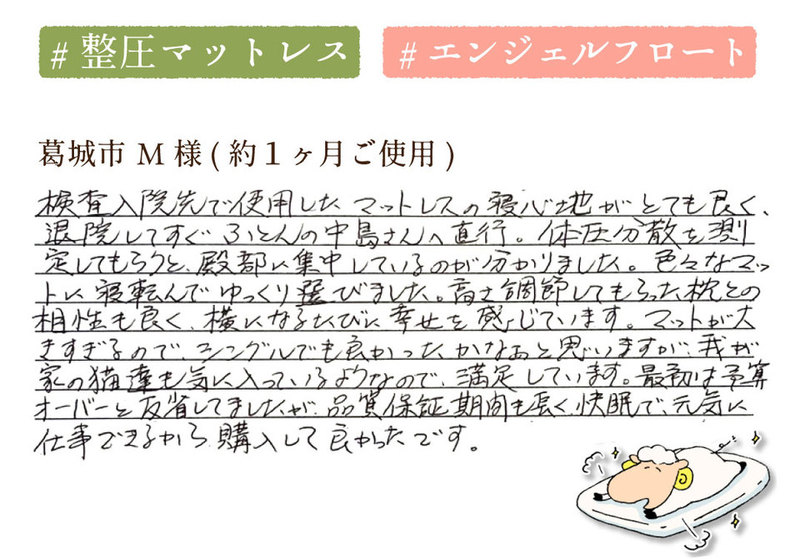 # 整圧マットレス
# エンジェルフロート
葛城市 M 様 ( 約１ヶ月ご使用 )
検査入院先で使用した マットレスの寝心地がとても良く、
退院してすぐ ふとんの中島さんへ直行。体圧分散を測
定してもらうと、殿部に集中しているのが分かりました。色々なマッ
トに寝転んで ゆっくり選びました。高さ調節してもらった枕との
相性も良く、横になるたびに幸せを感じています。マットが大
きすぎるので、シングルでも良かったかなぁと思いますが、我が
家の猫達も気に入っているようなので、満足しています。最初は予算
オーバーと反省してましたが、品質保証期間も長く快眠で、元気に
仕事できるから購入して良かったです。